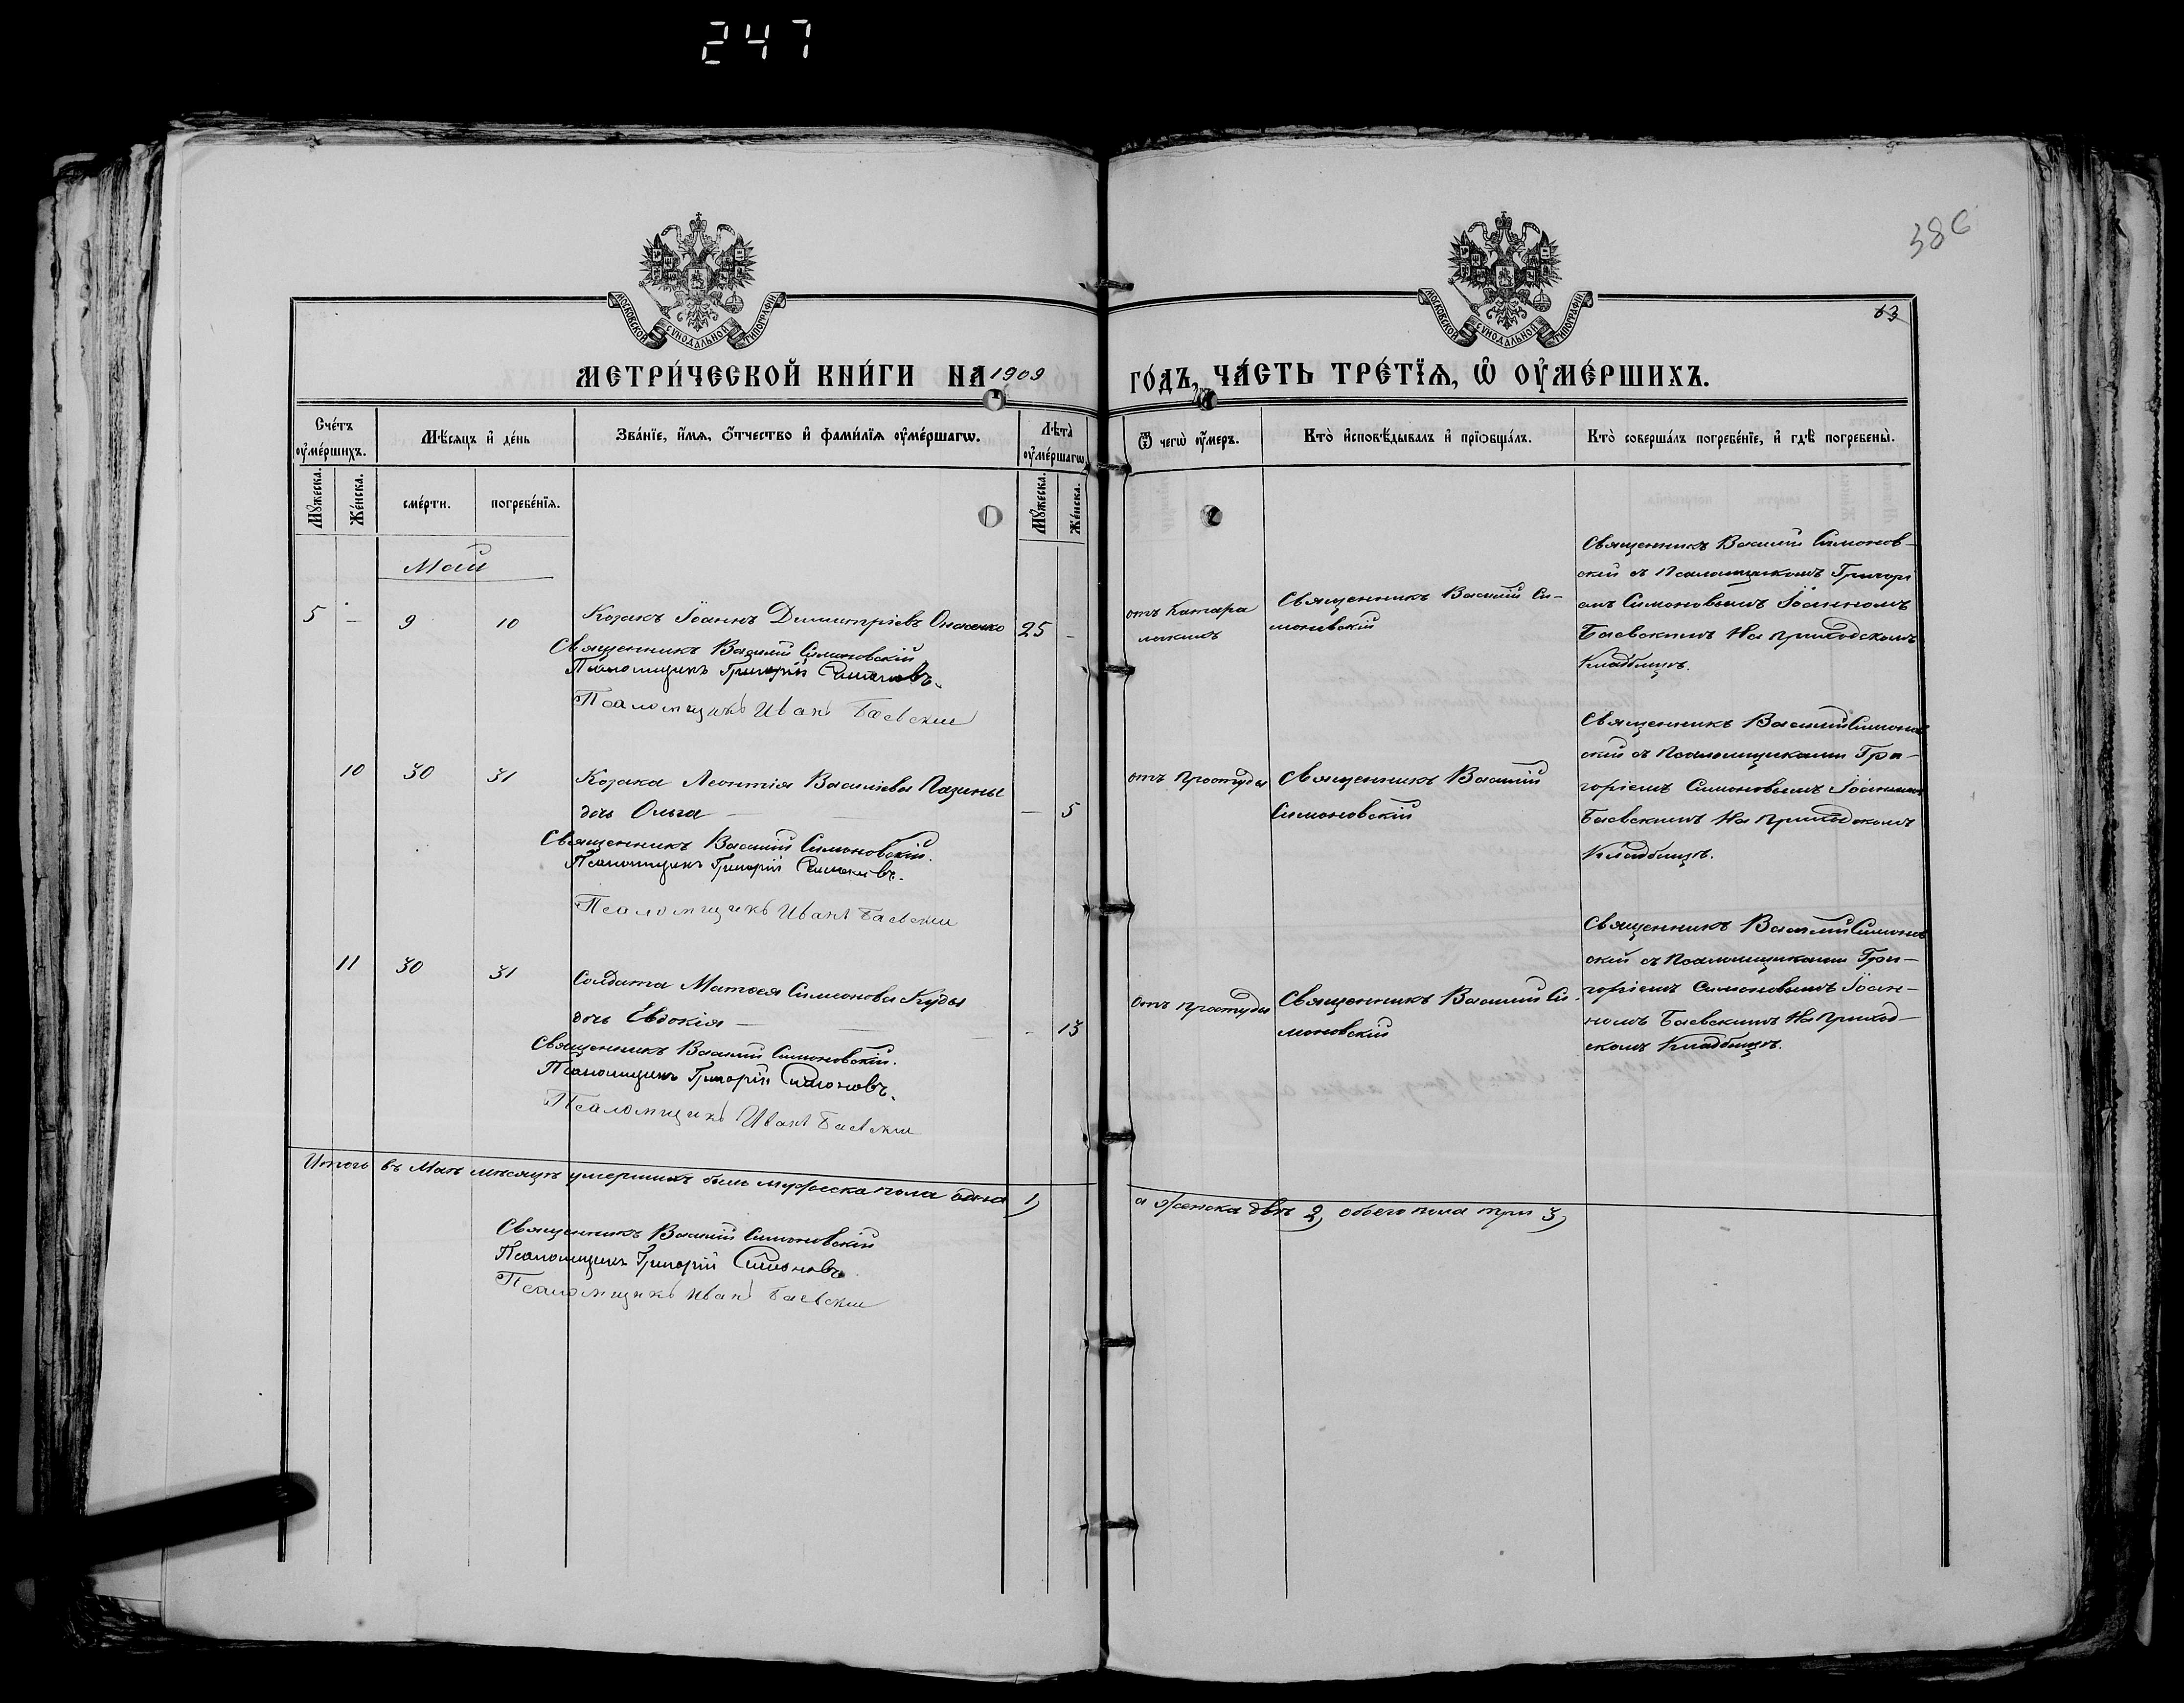 247
386
63
МОСКОВСКОЙ СѴНОДАЛЬНОЙ ТИПОГРАФІИ
МОСКОВСКОЙ СѴНОДАЛЬНОЙ ТИПОГРАФІИ
МЕТРИ́ЧЕСКОЙ КНИ́ГИ НА 1909 ГО́ДЪ, ЧА́СТЬ ТРЕ́ТЇѦ, Ѡ҆ ОУ҆МЕ́РШИХЪ.
Сче́тъ оу҆ме́ршихъ.
Мѣ́сяцъ и҆ де́нь
Зва́нїе, и҆́мѧ, ѻ҆́тчество и҆ фами́лїѧ оу҆ме́ршагѡ.
Лѣ́та̀ оу҆ме́ршагѡ.
Ѿ чегѡ̀ оу҆́меръ.
Кто̀ и҆сповѣ́дывалъ и҆ прїѻбща́лъ.
Кто̀ соверша́лъ погребе́нїе, и҆ гдѣ̀ погребены̀.
Мꙋ́жеска.
Же́нска.
сме́рти.
погребе́нїѧ.
Мꙋ́жеска.
Же́нска.
Май
5 - 9 10
Козакъ Іоаннъ Димитріевъ Онаненко 25 -
Священникъ Василій Симоновскій
Псаломщикъ Григорій Симоновъ.
Псаломщикъ Иванъ Баевскій
отъ Катара
легкихъ
Священникъ Василій Си-
моновскій
Священникъ Василій Симонов-
скій съ Псаломщикомъ Григорі
емъ Симоновымъ Іоанномъ
Баевскимъ На приходскомъ
Кладбищѣ.
10 30 31
Козака Леонтія Васильева Пазины
дочь Ольга - 5
Священникъ Василій Симоновскій.
Псаломщикъ Григорій Симоновъ.
Псаломщикъ Иванъ Баевскій
отъ простуды
Священникъ Василій
Симоновскій
Священникъ Василій Симонов
скій съ Псаломщиками Гри-
горіемъ Симоновымъ Іоанномъ
Баевскимъ На приходскомъ
Кладбищѣ.
11 30 31
Солдата Матѳея Симонова Куды
дочь Евдокія - 13
Священникъ Василій Симоновскій.
Псаломщикъ Григорій Симоновъ.
Псаломщикъ Иванъ Баевскій
отъ простуды
Священникъ Василій Си-
моновскій
Священникъ Василій Симонов
скій съ Псаломщиками Гри-
горіемъ Симоновымъ Іоан-
номъ Баевскимъ На приход-
скомъ Кладбищѣ.
Итого въ Маѣ мѣсяцѣ умершихъ было мужеска пола одна 1, а женска двѣ 2, обоего пола три 3,
Священникъ Василій Симоновскій
Псаломщикъ Григорій Симоновъ
Псаломщикъ Иванъ Баевскій